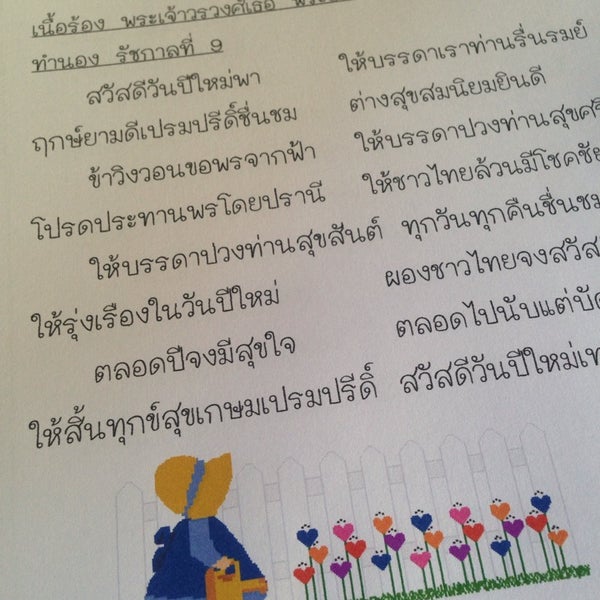 เนื้อร้อง พระเจ้าวรวงศ์เธอ
ทำนอง รัชกาลที่ 9
สวัสดีวันปีใหม่พา ให้บรรดาเราท่านรื่นรมย์
ฤกษ์ยามดีเปรมปรีดิ์ชื่นชม ต่างสุขสมนิยมยินดี
ข้าวิงวอนขอพรจากฟ้า ให้บรรดาปวงท่านสุขศรี
โปรดประทานพรโดยปรานี ให้ชาวไทยล้วนมีโชคชัย
ให้บรรดาปวงท่านสุขสันต์ ทุกวันทุกคืนชื่นชม
ให้รุ่งเรืองในวันปีใหม่ ผองชาวไทยจงสวัส
ตลอดปีจงมีสุขใจ ตลอดไปนับแต่บัด
ให้สิ้นทุกข์สุขเกษมเปรมปรีดิ์ สวัสดีวันปีใหม่เท